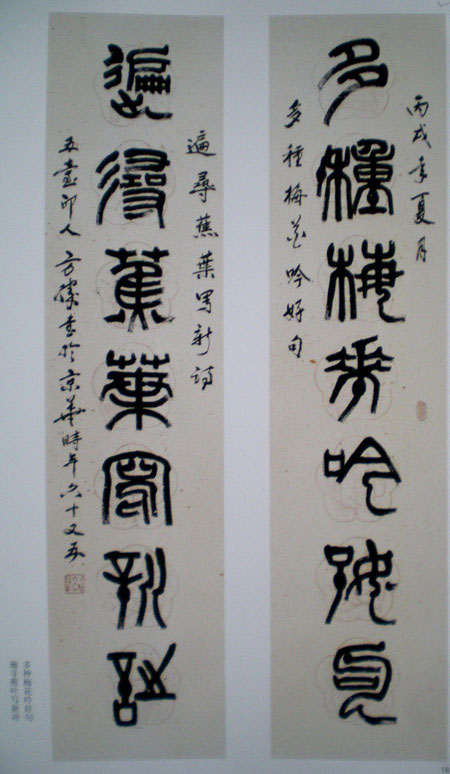 丙戌年夏月
多種梅花吟好句
多種梅花吟好句
遍尋蕉葉写新詩
遍尋蕉葉寫新詩
五臺印人方書於京華時年六十又五
多种梅花吟好句
遍寻蕉叶写新诗